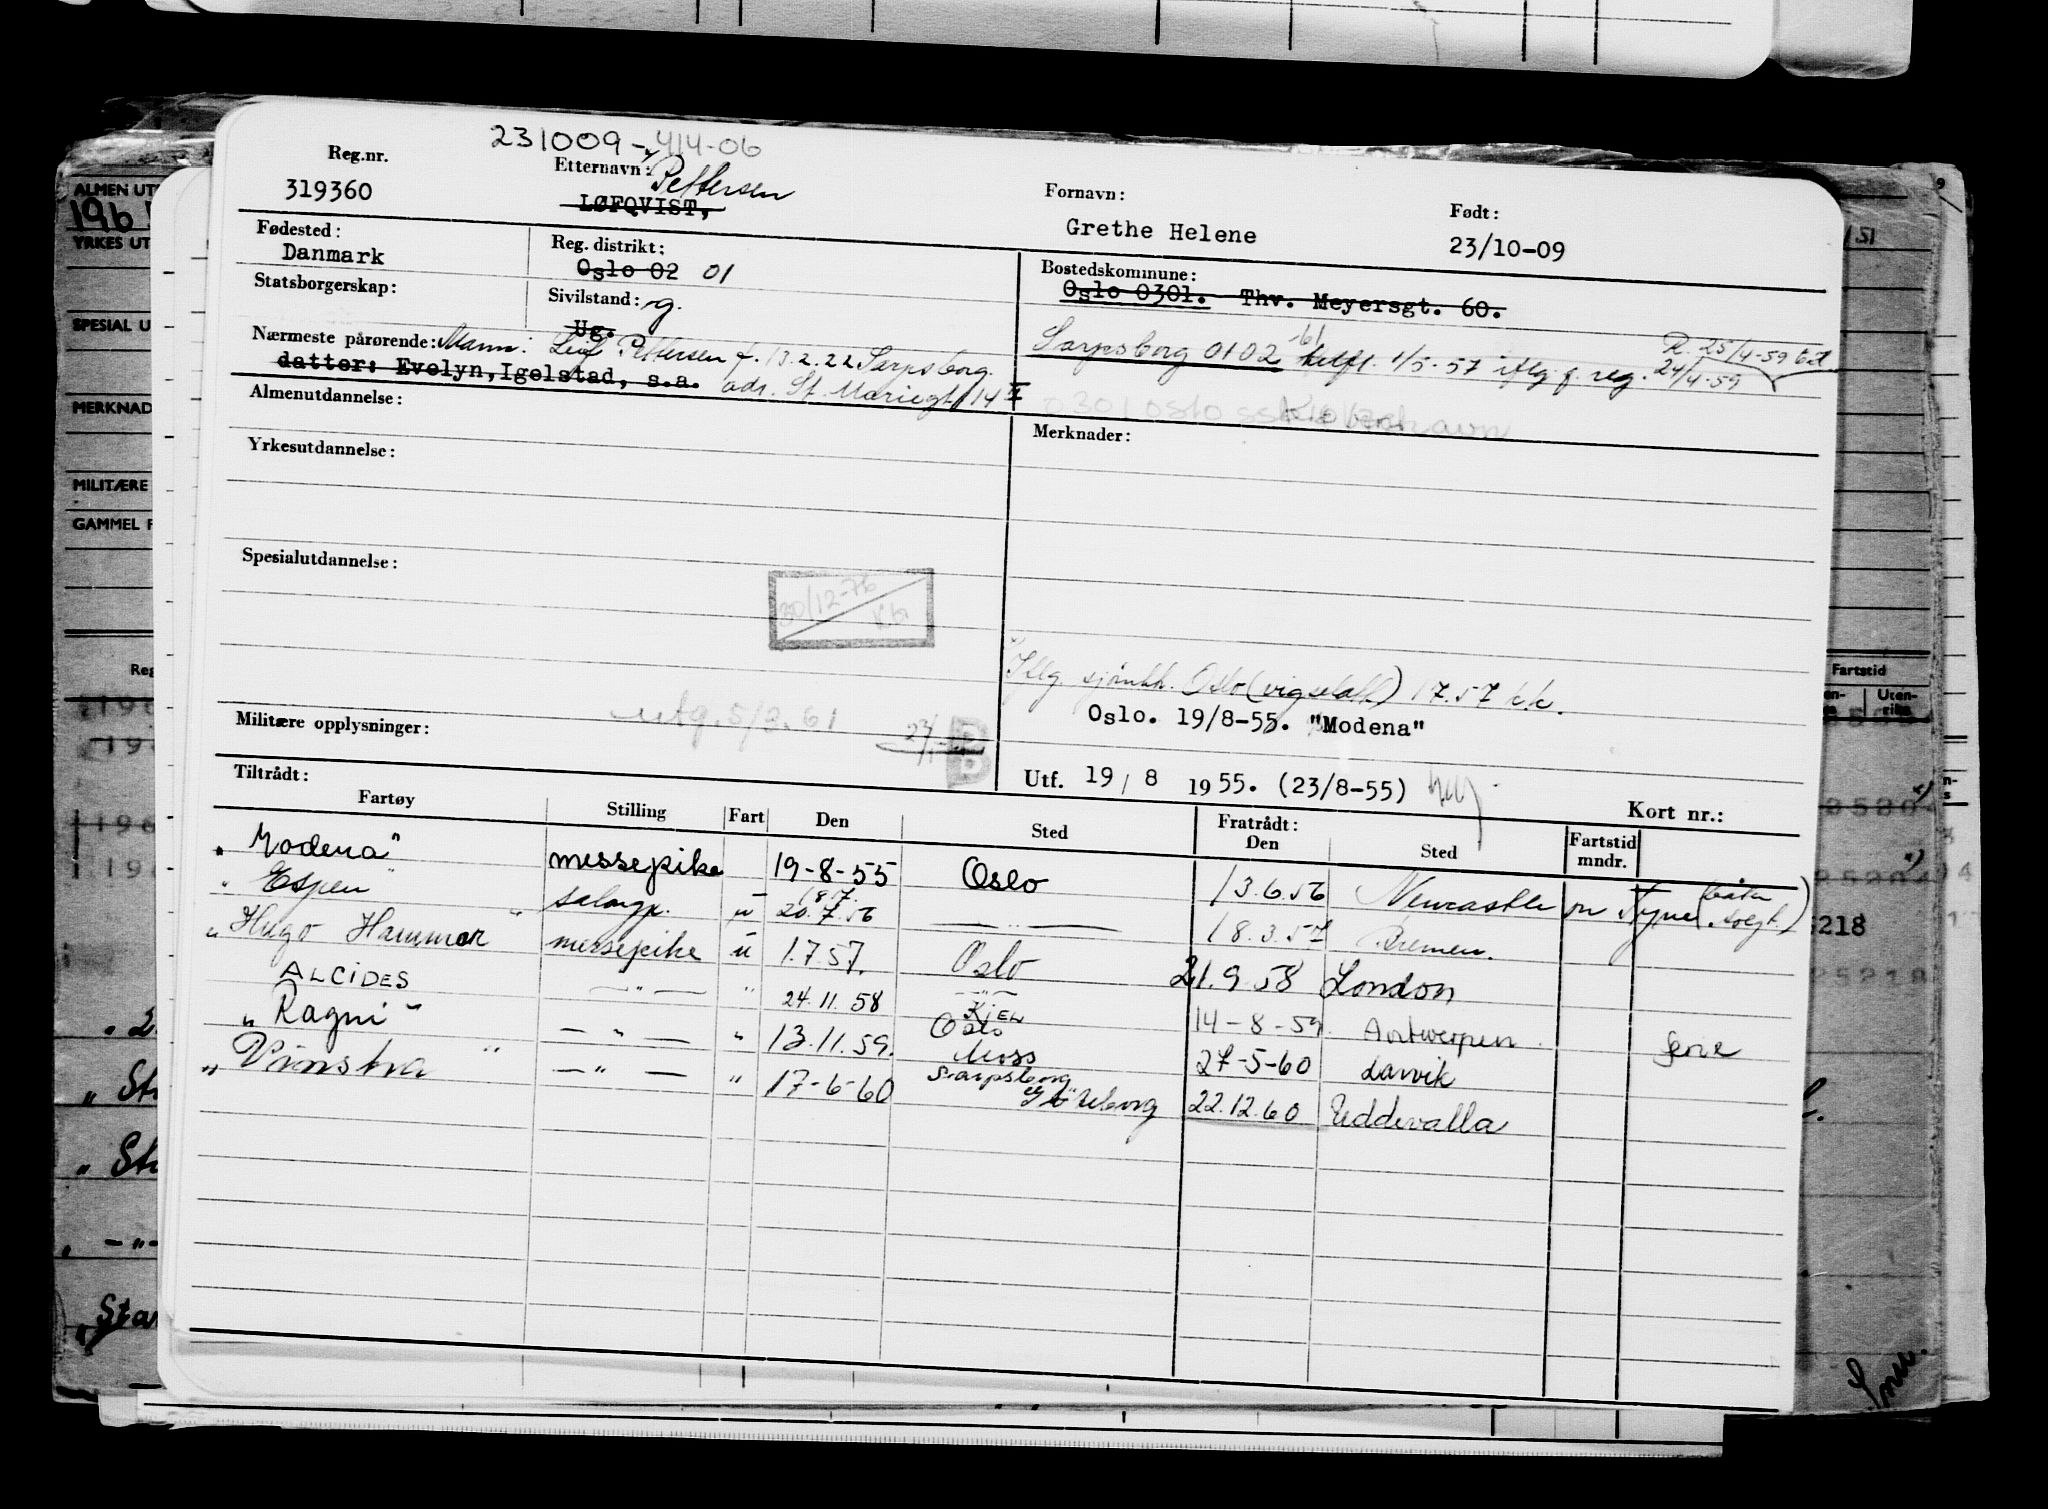 231009-414-06
Reg.nr.
319360
Etternavn: Pettersen
LØFQVIST,
Fornavn:
Grethe Helene
Født:
23/10-09
Fødested:
Danmark
Reg. distrikt:
Oslo 02 01
Bostedskommune:
Oslo 0301. Thv. Meyersgt. 60.
Statsborgerskap:
Sivilstand: g.
Ug.
Sarpsborg 0102 1/5-57 iflg. f. reg. 24/4-59
R. 25/4-59
Nærmeste pårørende: Mann: Leif Pettersen f. 13.2.22 Sarpsborg.
datter: Evelyn, Igelstad, s.a. adr. St. Mariegt. 114 II
0301 Oslo
Almenutdannelse:
Merknader:
Yrkesutdannelse:
Spesialutdannelse:
30/12-76
Iflg. sjømkk. Oslo (vigselatt.) 17.57
Militære opplysninger:
utg. 5/3.61
Oslo. 19/8-55. "Modena"
Utf. 19/8 1955. (23/8-55)
Kort nr.:
Tiltrådt:
Fartøy Stilling Fart Den Sted Fratrådt: Den Sted Fartstid mndr.
"Modena" messepike 19-8-55 Oslo 13.6.56 Newcastle on Tyne (båten solgt.)
"Espen" salongp. u 18.7. 20.7.56 — " — 18.3.57 Bremen.
"Hugo Hammar" messepike u 1.7.57. Oslo 21.9.58 London
ALCIDES — " — " 24.11.58 — " — 14-8-59 Antwerpen ferie
"Ragni" — " — " 13.11.59. Kiel Oslo 27-5-60 Larvik
"Vinstra" — " — " 17-6-60 Moss Sarpsborg Göteborg 22.12.60 Uddevalla
ALMEN UT
196
YRKES UT
SPESIAL U
MERKNAD
MILITÆRE
GAMMEL F
Reg
Fartstid
Uten-
riks
5218